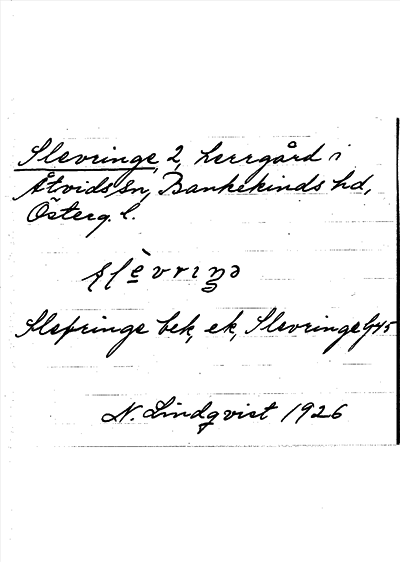 Slevringe, 2, herrgård i
Åtvids sn, Bankekinds hd,
Österg. l.
Slefringe bek, ek, Slevringe
N. Lindqvist 1926